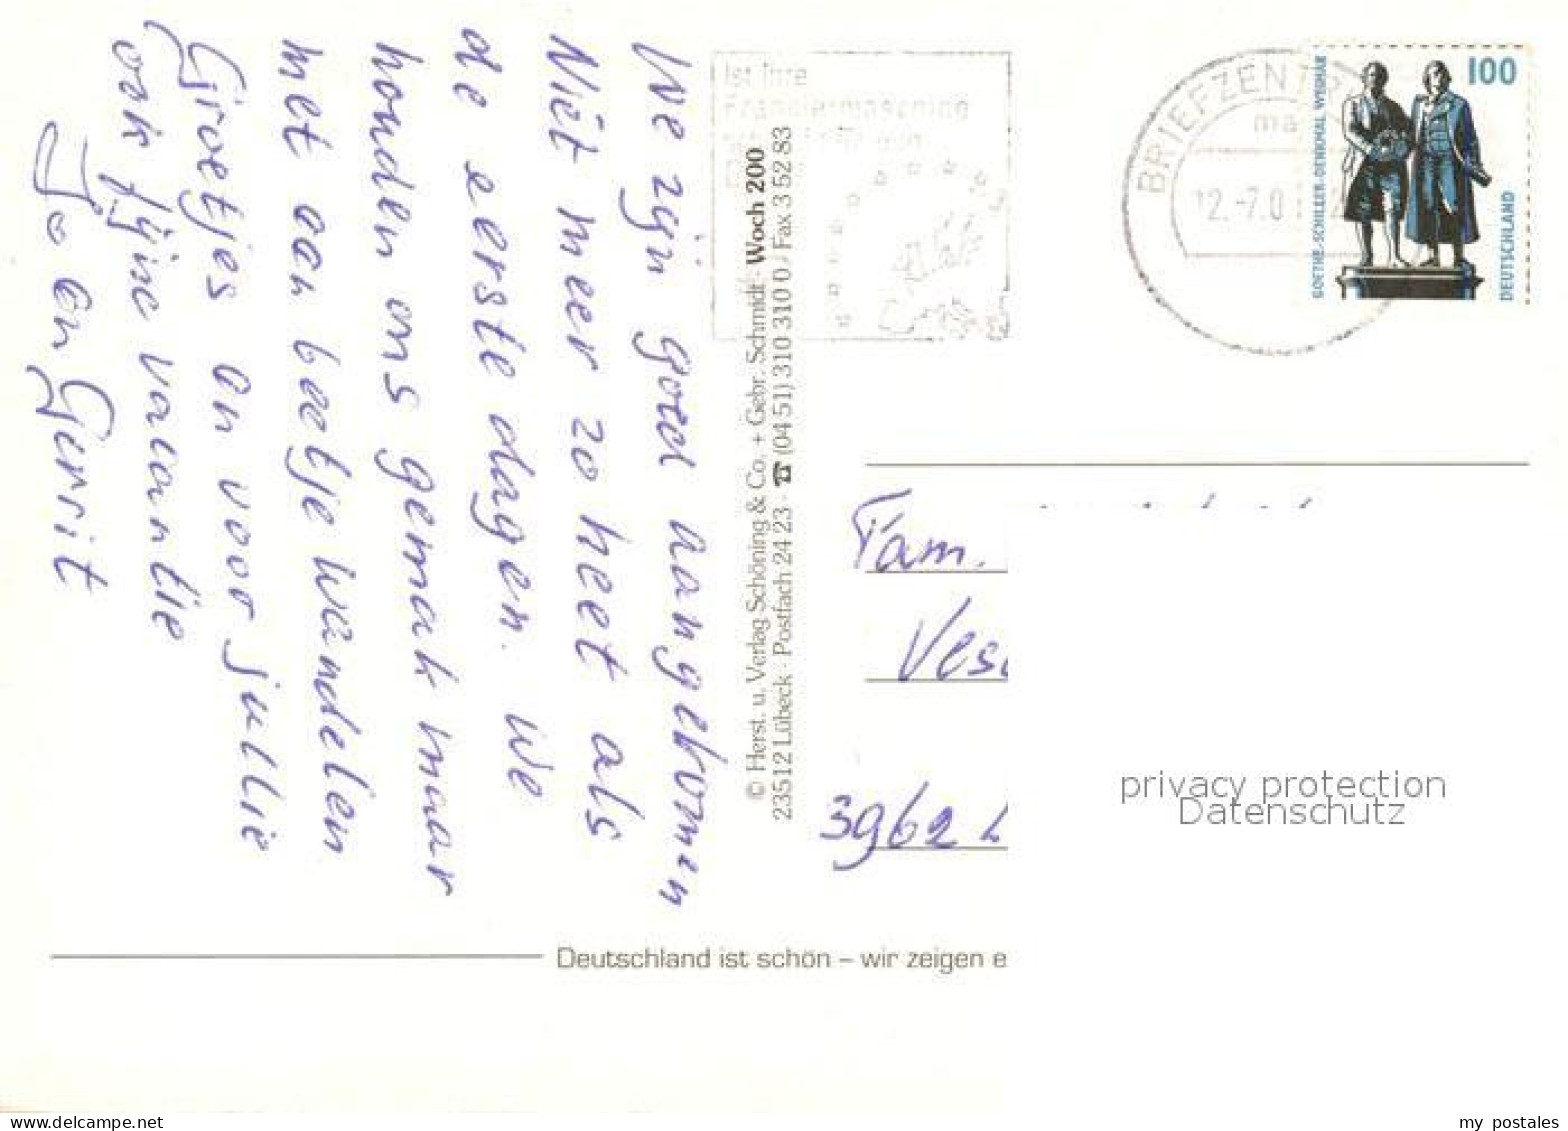 We zijn goed aangekomen
Niet meer zo heet als
de eerste dagen. We
houden ons gemak maar
met aan beetje wandelen
Groetjes an voor jullie
ook fijne vacantie
Jo en Gerrit
© Herst. u. Verlag Schöning & Co. + Gebr. Schmidt · Woch 200
23512 Lübeck · Postfach 24 23 · ☎ (04 51) 310 310 0 / Fax 3 52 83
Ist Ihre
Frankiermaschine
BRIEFZENT
ma
12.-7.0
100
GOETHE-SCHILLER-DENKMAL WEIMAR
DEUTSCHLAND
Fam.
Ves
3962 L
privacy protection
Datenschutz
Deutschland ist schön – wir zeigen e
my postales